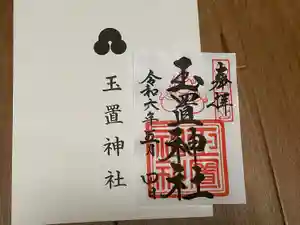 玉置神社
奉拝
玉置神社
令和六年五月四日